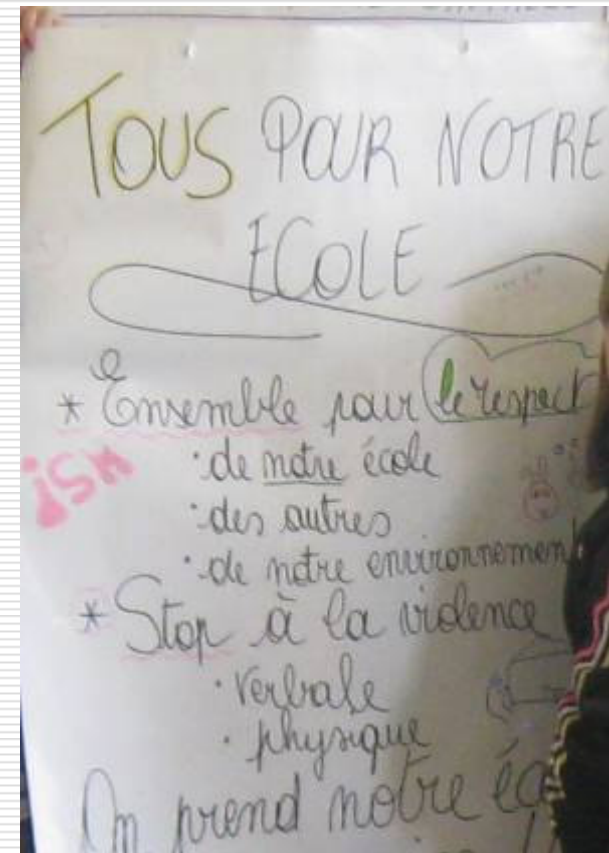 TOUS POUR NOTRE
ECOLE
* Ensemble pour le respect
ISM
· de notre école
· des autres
· de notre environnemen
* Stop à la violence
· Verbale
· physique
On prend notre éc